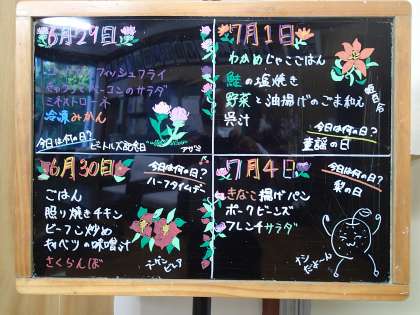 6月29日
フィッシュフライ
ベーコンのサラダ
ミネストローネ
冷凍みかん
今日は何の日?
ビートルズ記念日
6月30日
今日は何の日?
ハーフタイムデー
ごはん
照り焼きチキン
ビーフン炒め
キャベツの味噌汁
さくらんぼ
7月1日
わかめじゃこごはん
鮭の塩焼き
野菜と油揚げのごま和え
呉汁
今日は何の日?
童謡の日
7月4日
今日は何の日?
梨の日
きなこ揚げパン
ポークビーンズ
フレンチサラダ
ナシだよーん